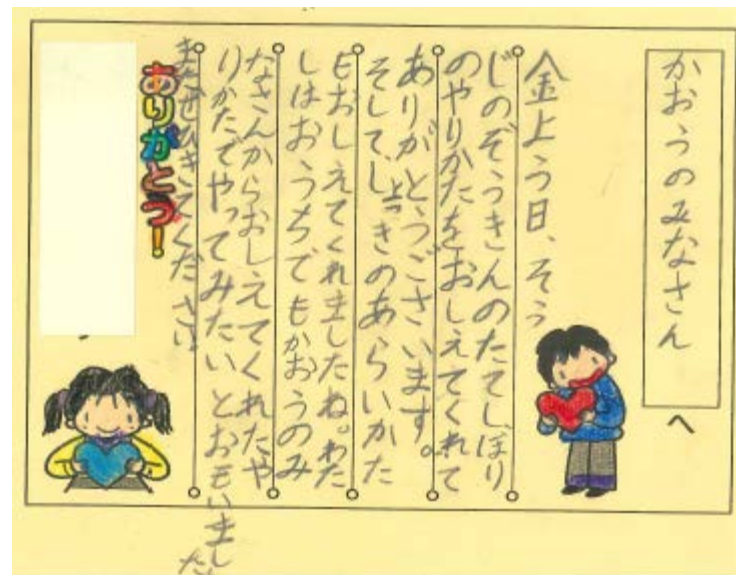 かおうのみなさん
へ
金よう日、そう
じのぞうきんのたてしぼり
のやりかたをおしえてくれて
ありがとうございます。
そして、しょっきのあらいかた
もおしえてくれましたね。わた
しはおうちでもかおうのみ
なさんからおしえてくれたや
りかたでやってみたいとおもいました
またぜひきてください
ありがとう!